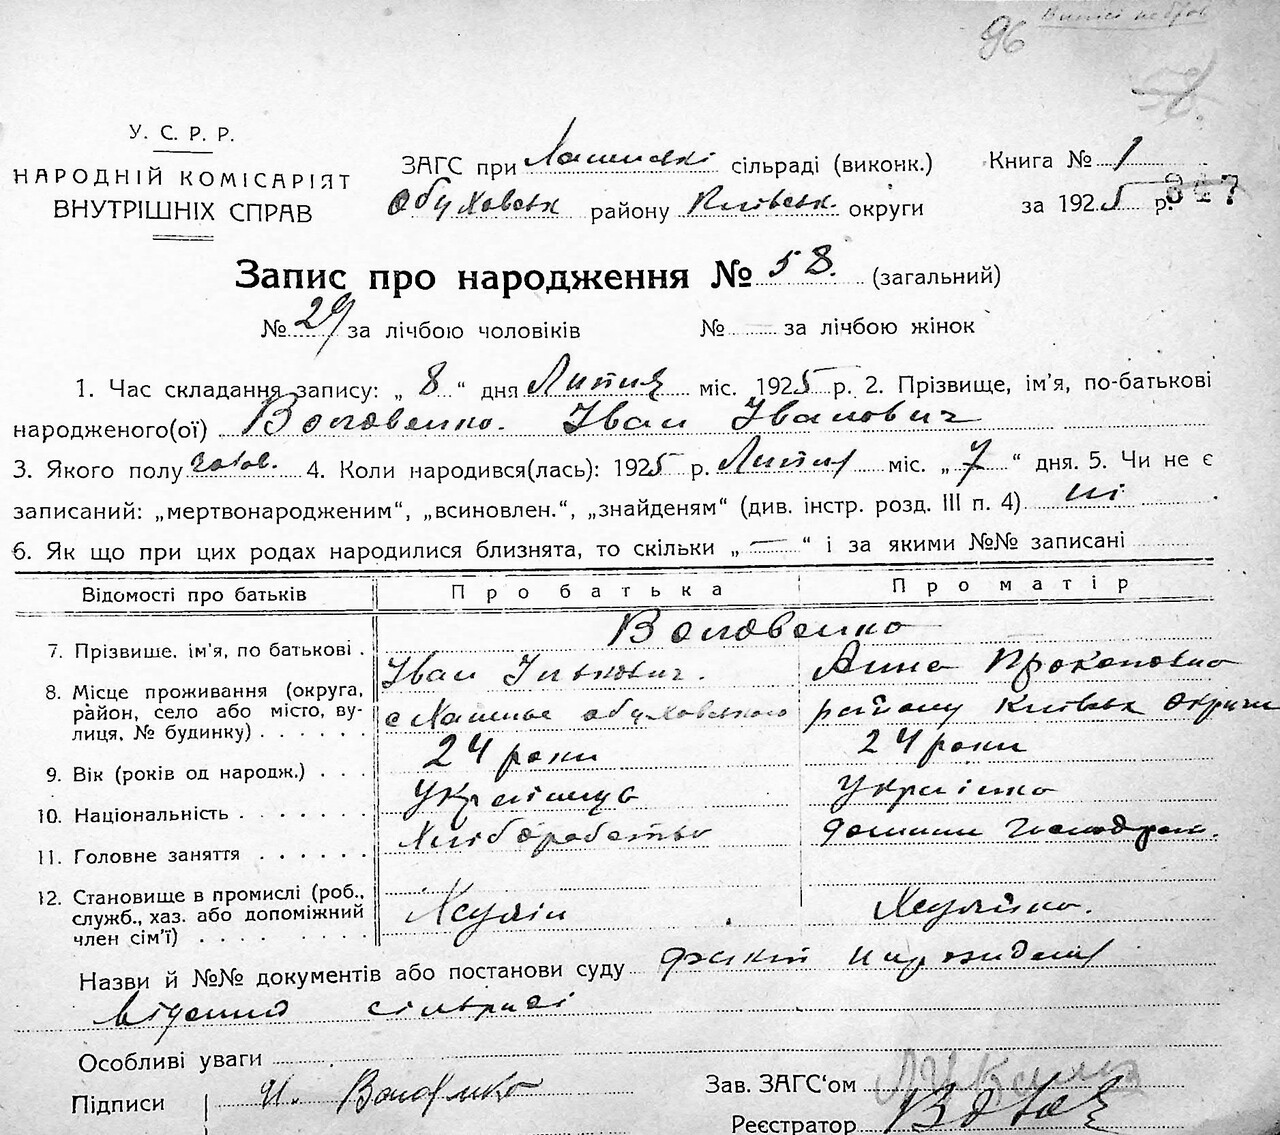 96
58
У. С. Р. Р.
НАРОДНІЙ КОМІСАРІЯТ
ВНУТРІШНІХ СПРАВ
ЗАГС при сільраді (виконк.)
Обуховськ району Київськ. округи
Книга № 1
за 1925 р.
347
Запис про народження № 58. (загальний)
№ 29 за лічбою чоловіків № — за лічбою жінок
1. Час складання запису: „ 8 “ дня Липня міс. 1925 р. 2. Прізвище, ім'я, по-батькові
народженого(ої) Воловенко. Іван Іванович
3. Якого полу чолов. 4. Коли народився(лась): 1925 р. Липня міс. „ 7 “ дня. 5. Чи не є
записаний: „мертвонародженим“, „всиновлен.“, „знайденям“ (див. інстр. розд. III п. 4) ні
6. Як що при цих родах народилися близнята, то скільки „ — “ і за якими №№ записані
Відомості про батьків Про батька Про матір
Воловенко
7. Прізвише, ім'я, по батькові . Іван Ількович. Анна Прокоповна
8. Місце проживання (округа, район, село або місто, вулиця, № будинку) . . . . . . с обуховського району Київськ округи
9. Вік (років од народж.) . . . 24 роки 24 роки
10. Національність . . . . . . . Українець Українка
11. Головне заняття . . . . . . Хліборобство Домашн господрст.
12. Становище в промислі (роб.,
служб., хаз. або допоміжний
член сім'ї) . . . . . . . .
Назви й №№ документів або постанови суду
сільраді
Особливі уваги
Підписи И. Воловенко
Зав. ЗАГС‘ом
Реєстратор